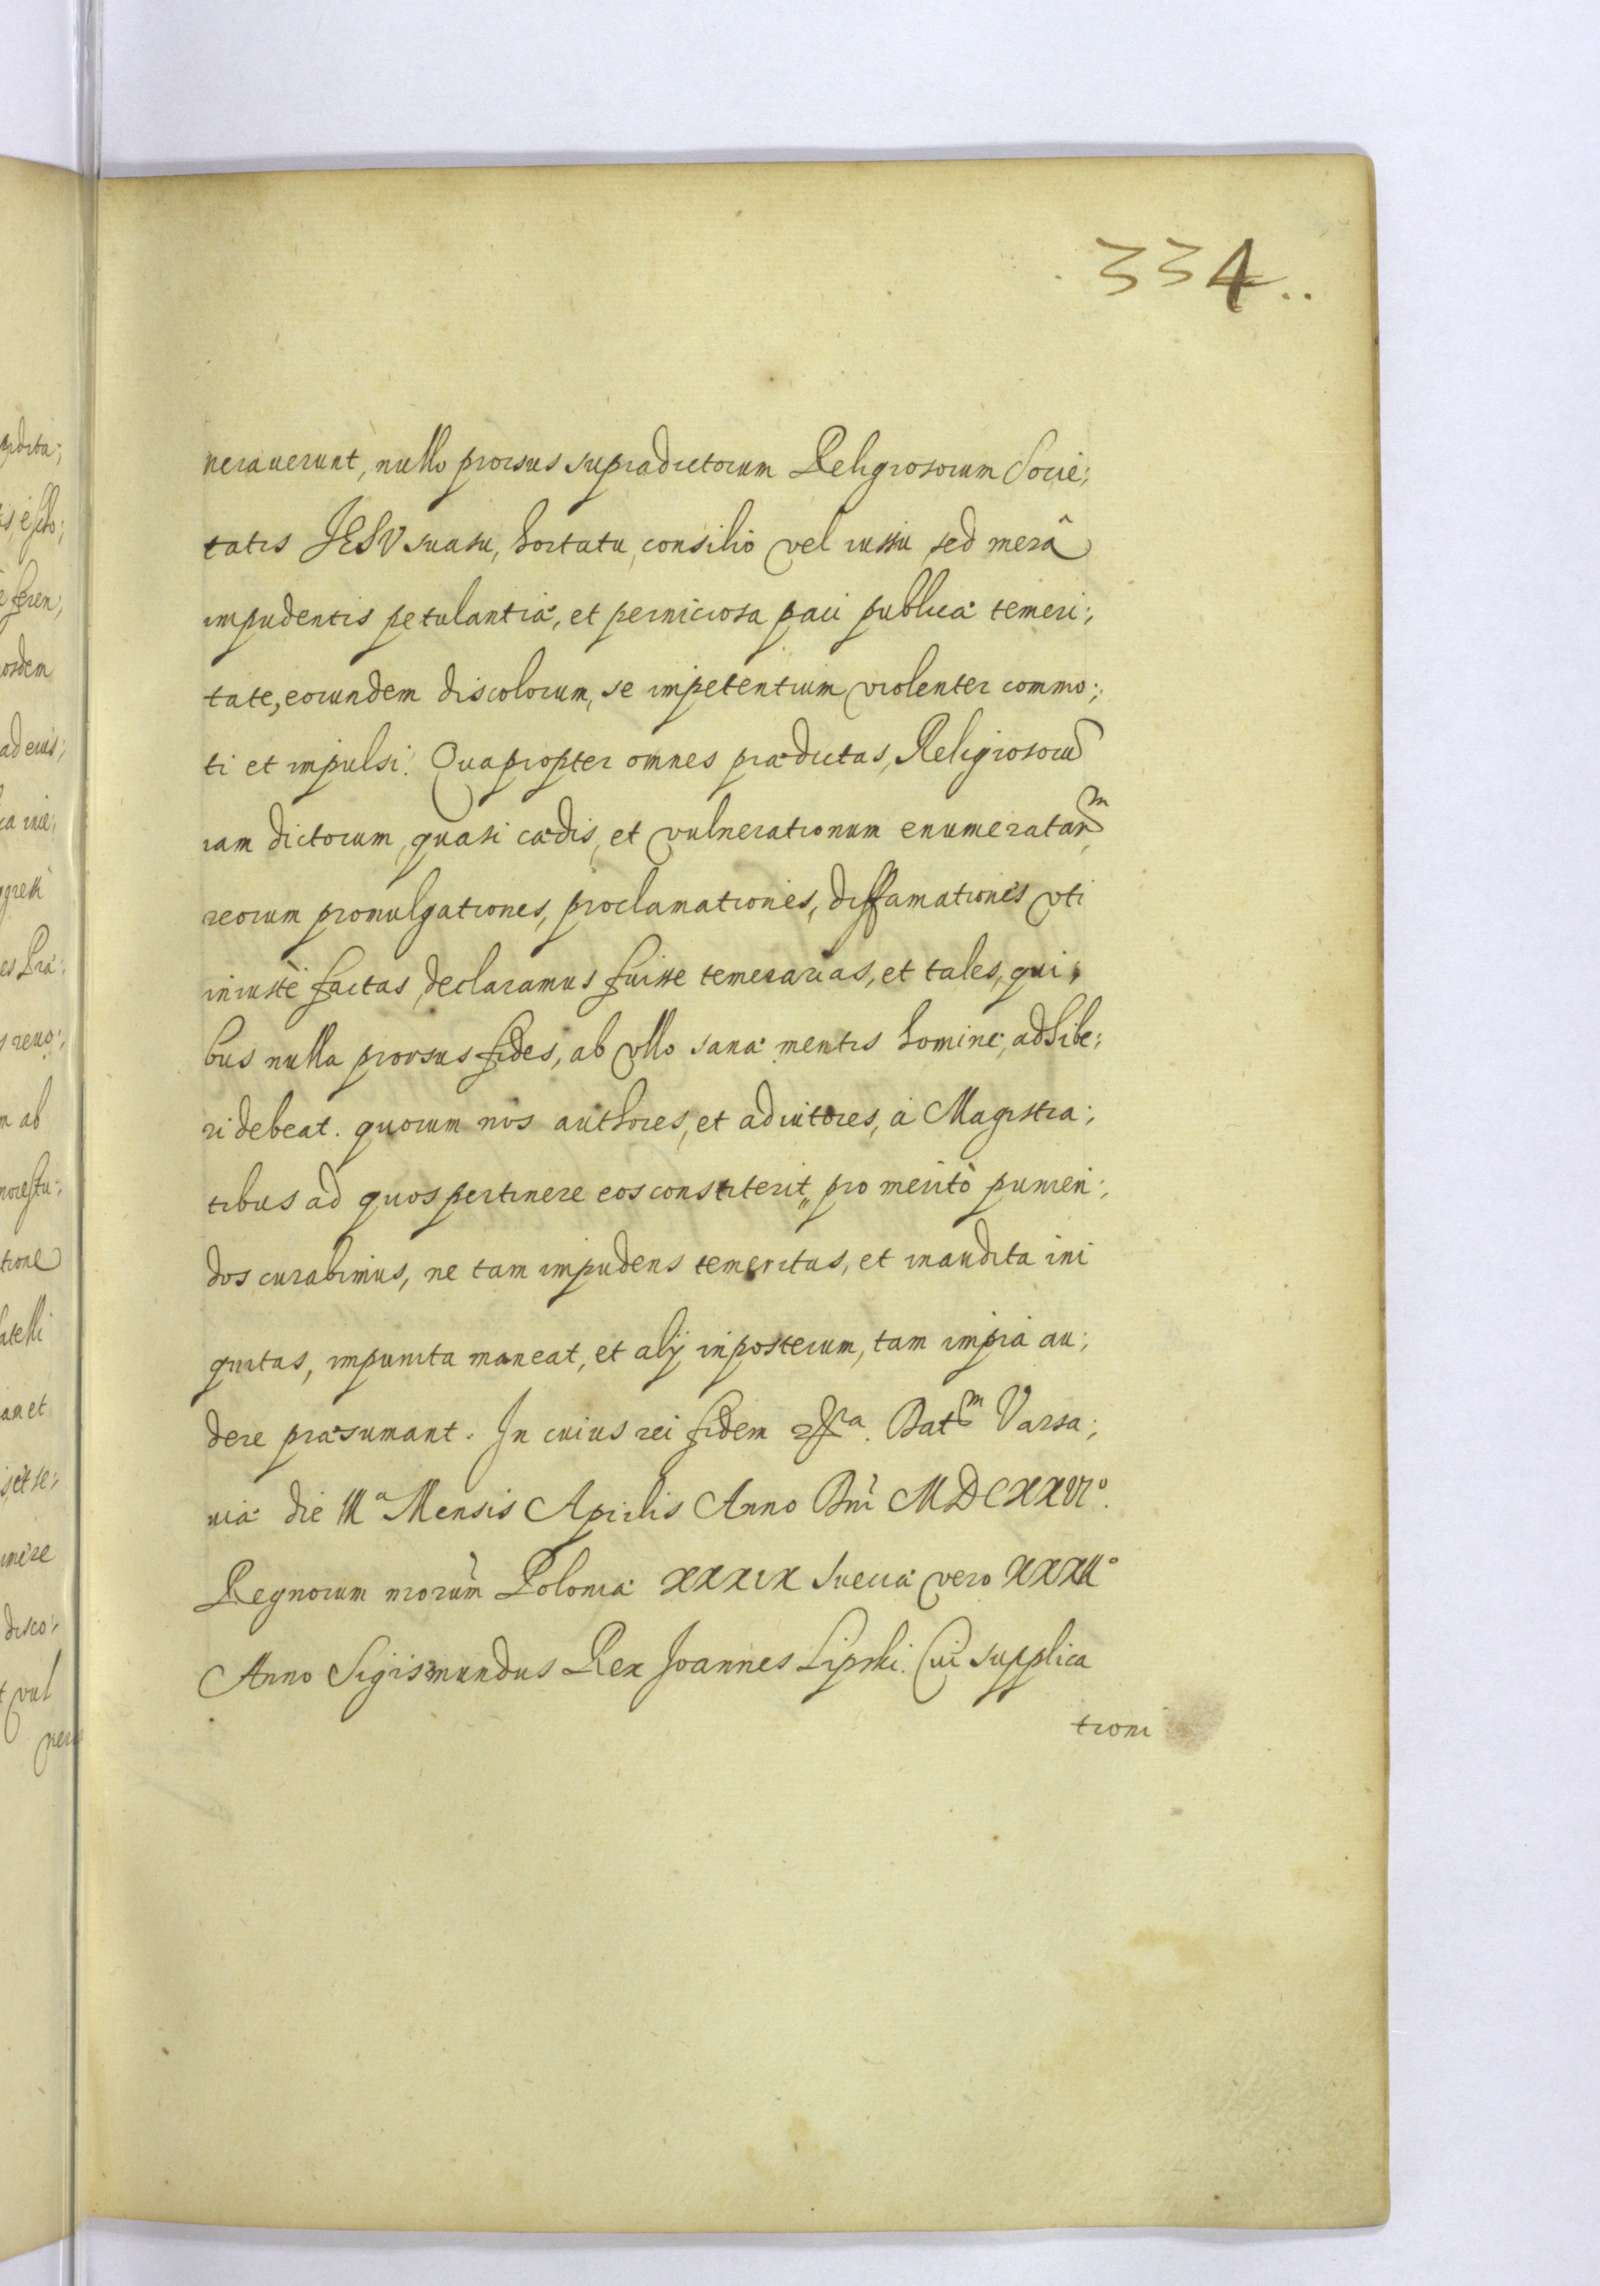 334..
nerauerunt, nullo prorsus supradictorum Religiosorum Socie;
tatis JESV suasu, hortatu, consilio vel iussu sed merâ
impudentis petulantiá, et perniciosa paci publicá temeri;
tate, eorundem discolorum, se impetentium violenter commo;
ti et impulsi. Quapropter omnes prádictas, Religiosorũ
iam dictorum, quasi cádis, et vulnerationum enumeratarᵐ
reorum promulgationes, proclamationes, diffamationes vti
iniustè factas, declaramus fuisse temerarias, et tales, qui;
bus nulla prorsus fides, ab vllo saná mentis homine, adhibe;
ri debeat. quorum nos authores, et adiutores, à Magistra;
tibus ad quos pertinere eos constiterit, pro merito punien;
dos curabimus, ne tam impudens temeritas, et inaudita ini
quitas, impunita maneat, et alij inposterum, tam impia au;
dere prásumant. In cuius rei fidem Datᵐ Varsa;
uiá die Mensis Aprilis Anno Dnĩ MDCXXVIº.
Regnorum nrorum̃ Poloniá XXXIX Sueciá vero XXXIIº
Anno Sigismundus Rex Joannes Lipski. Cui supplica
tioni